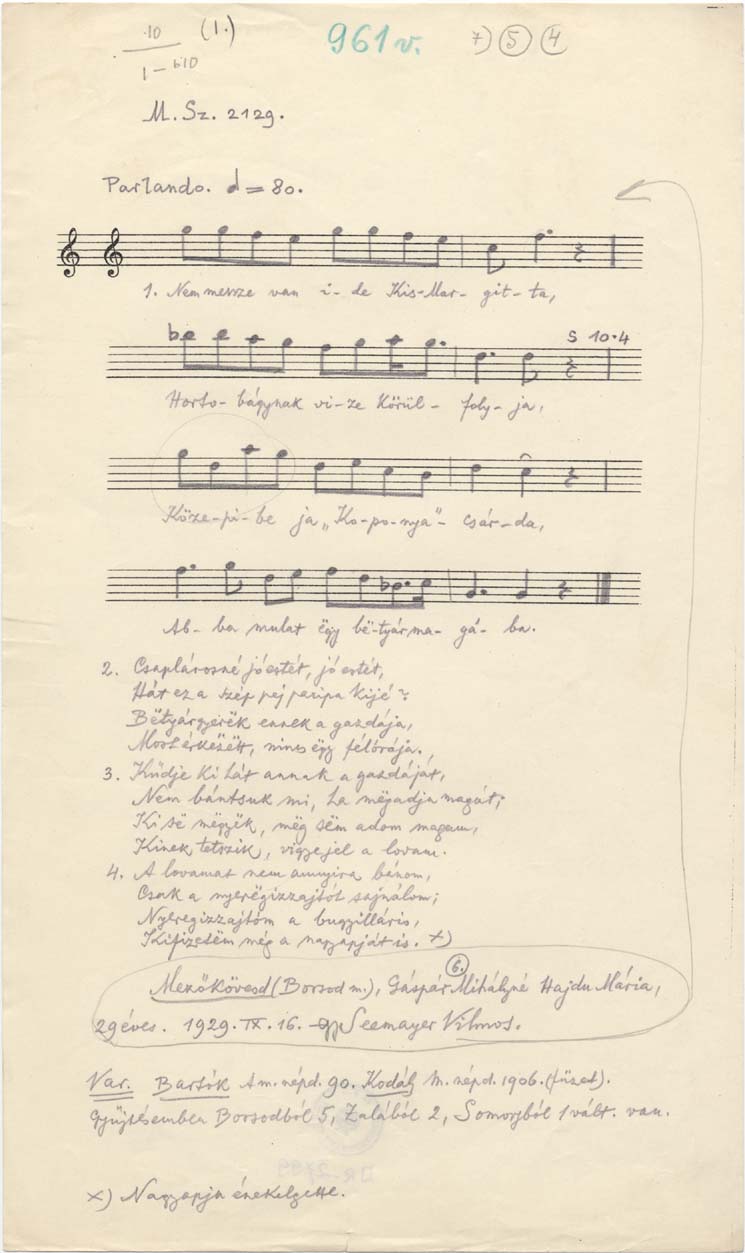 .10 (1.) 961 v. 7) 5 4
1 - b10
M. Sz. 2129.
Parlando. = 80.
1. Nem messze van i-de Kis-Mar-git-ta,
b S 10.4
Horto-bágynak vi-ze körül-foly-ja,
Köze-pi-be ja „Ko-po-nya"-csár-da,
Ab-ba mulat ëgy bë-tyár ma-gá-ba.
2. Csaplárosné jó estét, jó estét,
Hát ez a szép pej paripa kijé?
Bëtyárgyerëk ennek a gazdája,
Most érkëzëtt, nincs ëgy félórája.
3. Küdje ki hát annak a gazdáját,
Nem bántsuk mi, ha mëgadja magát;
Ki së mëgyëk, mëg sëm adom magam,
Kinek tetszik, vigye jel a lovam.
4. A lovamat nem annyira bánom,
Csak a nyerëgizzajtót sajnálom;
Nyeregizzajtóm a bugyilláris,
Kifizetëm mëg a nagyapját is. x)
6.
Mezőkövesd (Borsod m.), Gáspár Mihályné Hajdu Mária,
29 éves. 1929. IX. 16. Seemayer Vilmos.
Var. Bartók A m. népd. 90. Kodály M. népd. 1906. (füzet).
Gyüjtésemben Borsodból 5, Zalából 2, Somogyból 1 vált. van.
x) Nagyapja énekelgette.